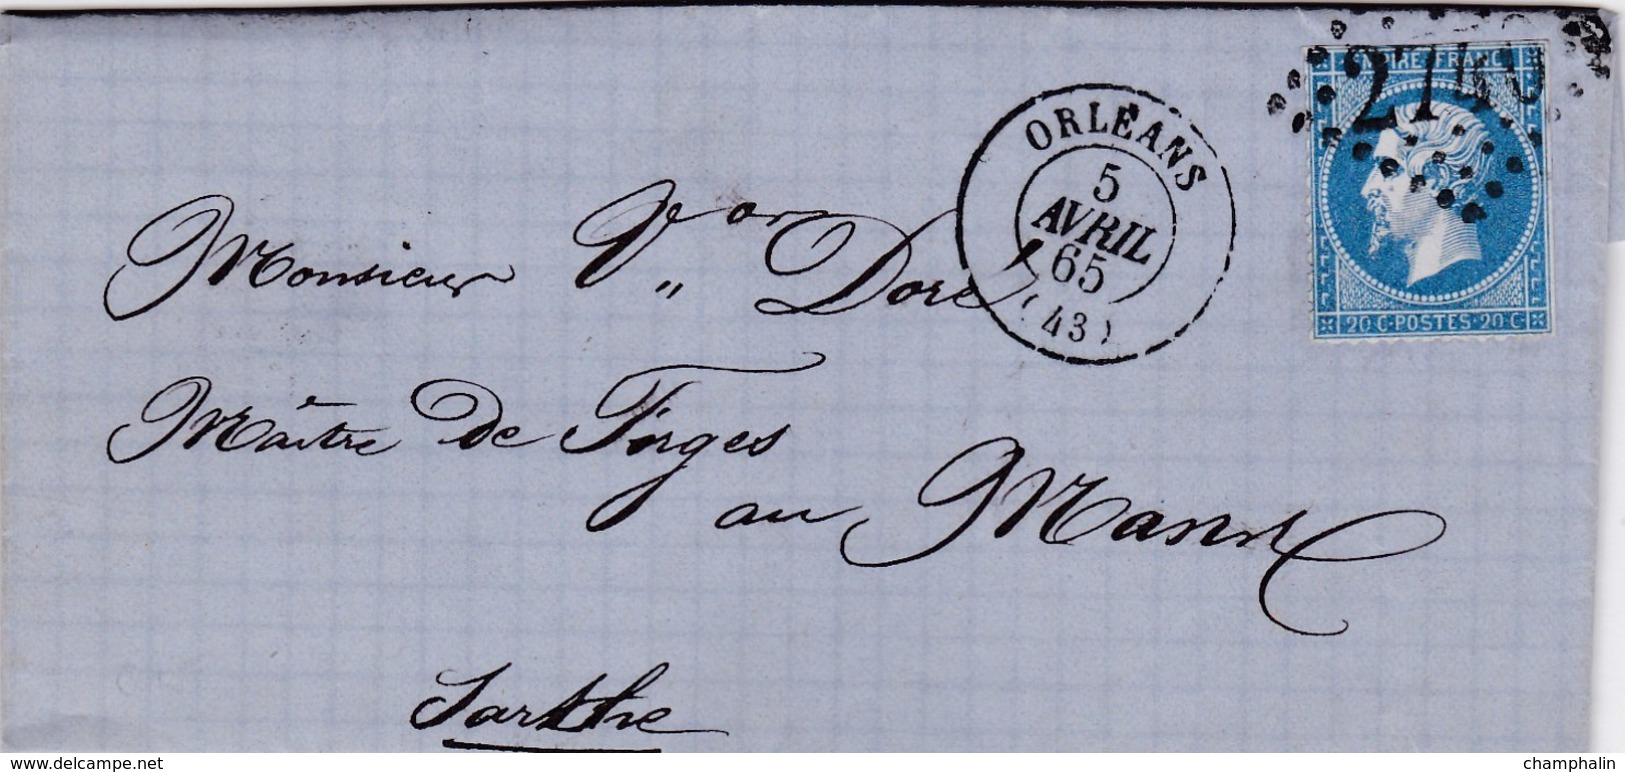 EMPIRE FRANC
2740
ORLÉANS
5
AVRIL
65
(43)
20 C·POSTES·20 C
Monsieur Vor Doré
Maître de Forges
au Mans
Sarthe
www.delcampe.net
champhalin